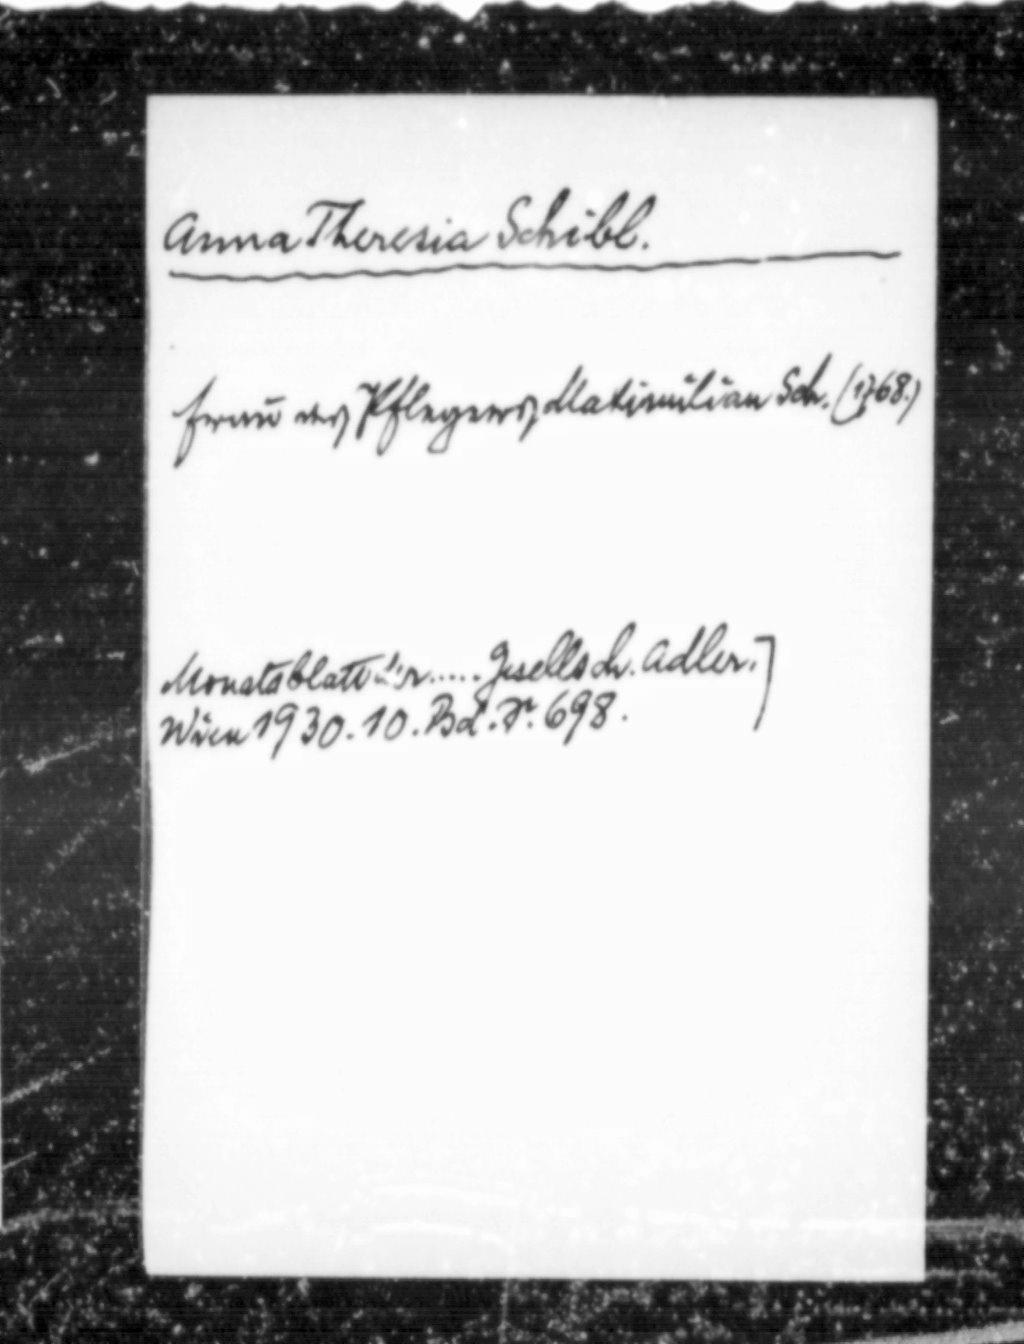 Anna Theresia Schibl.
Frau des Pflegers Maximilian Sch. (1768.)
Monatsblatt der..... Gesellsch. Adler.]
Wien 1930. 10. Bd. Nr. 698.